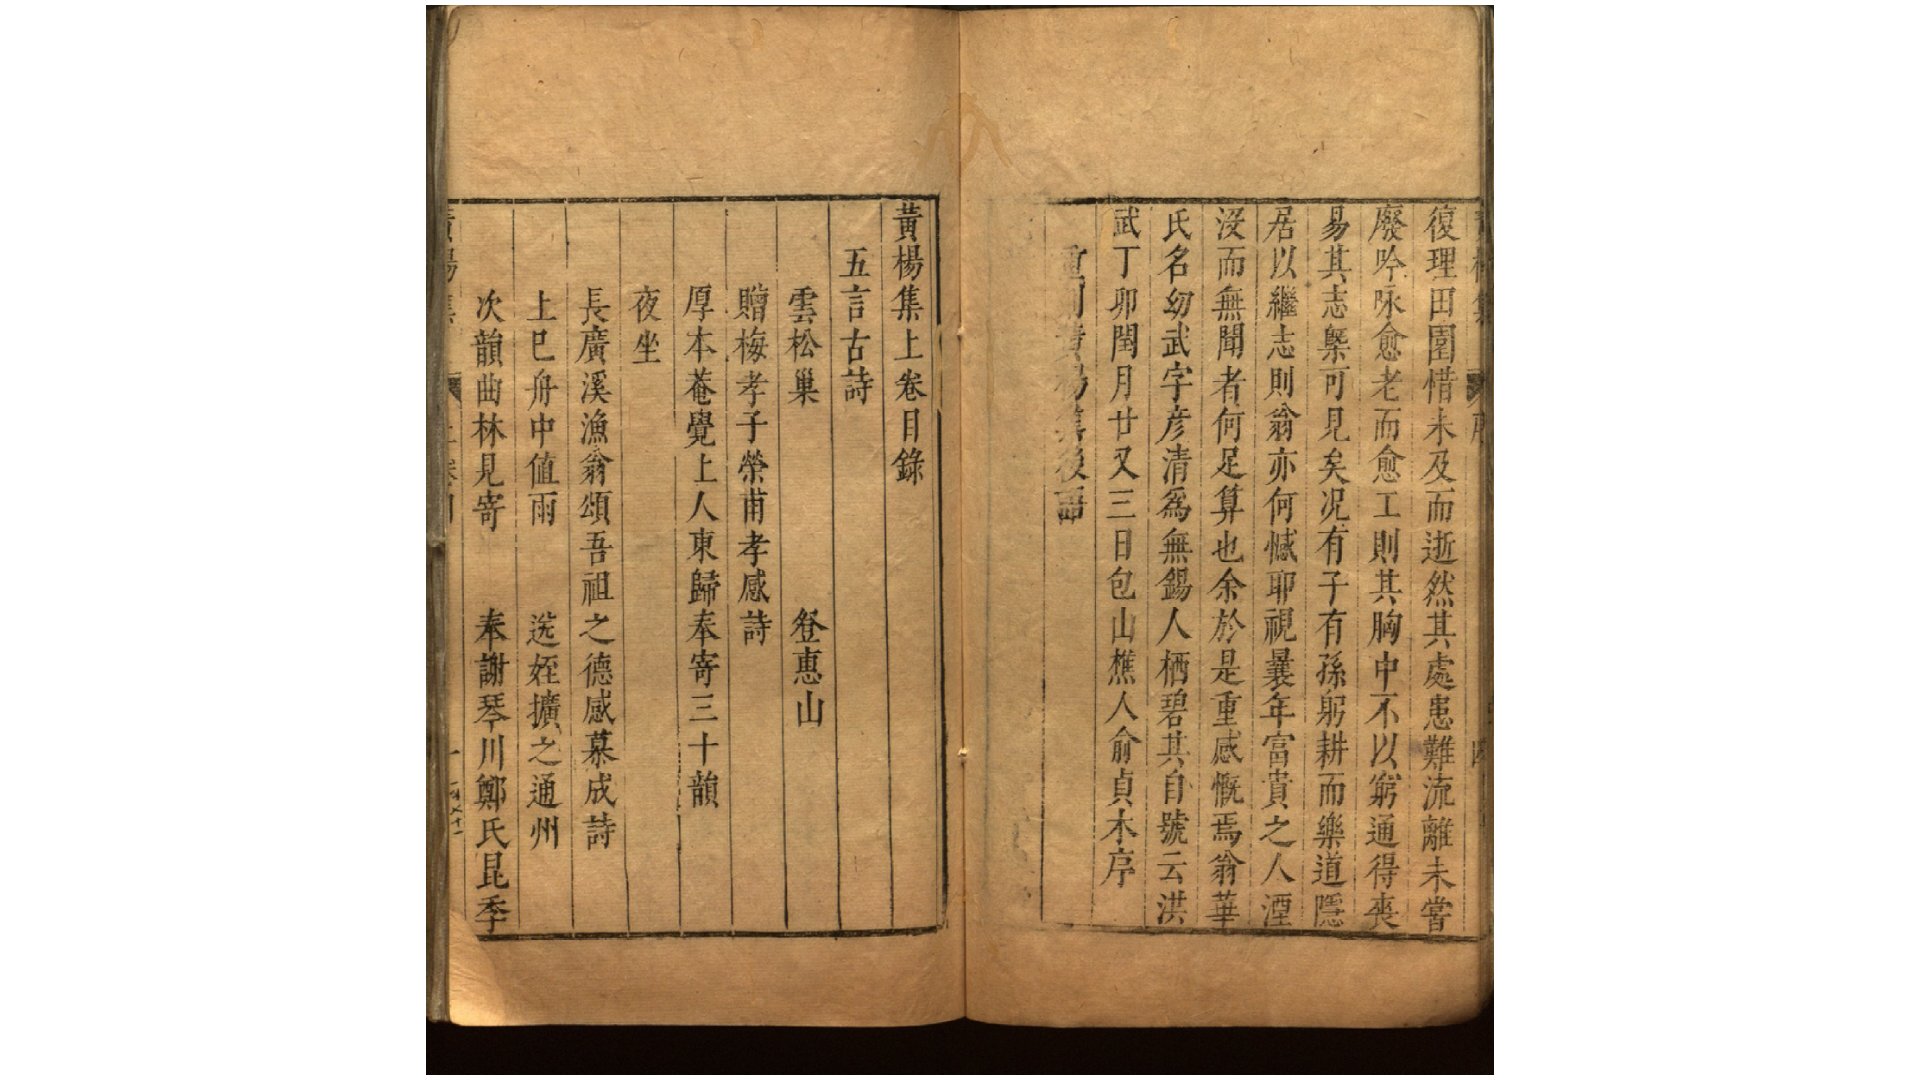 復理田園惜未及而逝然其處患難流離未嘗
廢吟咏愈老而愈工則其胸中不以窮通得喪
易其志槩可見矣况有子有孫躬耕而樂道隱
居以繼志則翁亦何憾耶視曩年富貴之人湮
沒而無聞者何足算也余於是重感慨焉翁華
氏名幼武字彦清爲無錫人栖碧其自號云洪
武丁卯閏月廿又三日包山樵人俞貞木序
重刊黃楊集後語
黃楊集上卷目錄
五言古詩
雲松巢 登惠山
贈梅孝子榮甫孝感詩
厚本菴覺上人東歸奉寄三十韻
夜坐
長廣溪漁翁頌吾祖之德感慕成詩
上巳舟中値雨 送姪擴之通州
次韻曲林見寄 奉謝琴川鄭氏昆季